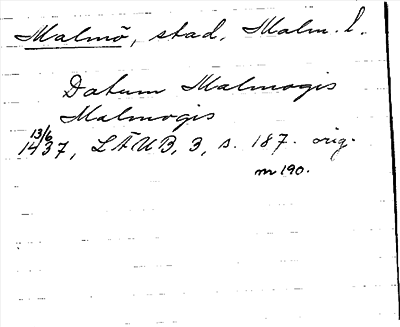 Malmö, stad, Malm. l.
Datum Malmogis
Malmogis
13/6
1437, LÄUB, 3, s. 187. orig.
m 190.